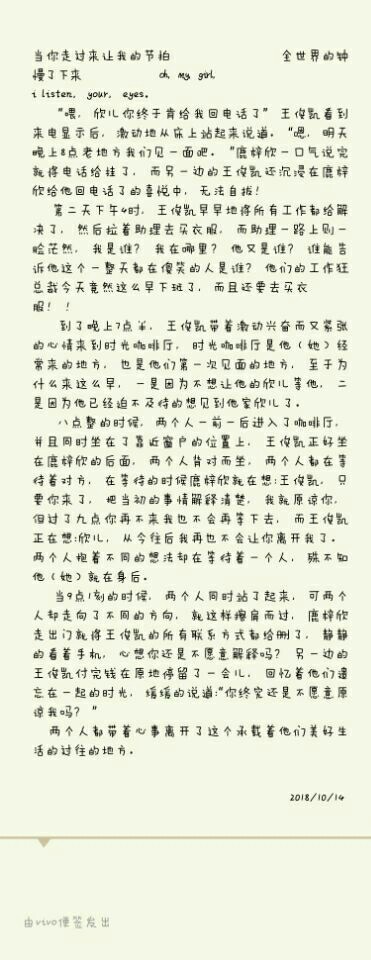 当你走过来让我的节拍 全世界的钟
慢了下来 oh, my, girl,
i listen, your, eyes。
“喂，欣儿你终于肯给我回电话了”王俊凯看到
来电显示后，激动地从床上站起来说道。“嗯，明天
晚上8点老地方我们见一面吧。”鹿梓欣一口气说完
就将电话给挂了，而另一边的王俊凯还沉浸在鹿梓
欣给他回电话了的喜悦中，无法自拔！
第二天下午4时，王俊凯早早地将所有工作都给解
决了，然后拉着助理去买衣服，而助理一路上则一
脸茫然，我是谁？我在哪里？他又是谁？谁能告
诉他这个一整天都在傻笑的人是谁？他们的工作狂
总裁今天竟然这么早下班了，而且还要去买衣
服！！
到了晚上7点半，王俊凯带着激动兴奋而又紧张
的心情来到时光咖啡厅，时光咖啡厅是他（她）经
常来的地方，也是他们第一次见面的地方，至于为
什么来这么早，一是因为不想让他的欣儿等他，二
是因为他已经迫不及待的想见到他家欣儿了。
八点整的时候，两个人一前一后进入了咖啡厅，
并且同时坐在了靠近窗户的位置上，王俊凯正好坐
在鹿梓欣的后面，两个人背对而坐，两个人都在等
待着对方，在等待的时候鹿梓欣就在想：王俊凯，只
要你来了，把当初的事情解释清楚，我就原谅你，
但过了九点你再不来我也不会再等下去，而王俊凯
正在想：欣儿，从今往后我再也不会让你离开我了。
两个人抱着不同的想法却在等待着一个人，殊不知
他（她）就在身后。
当9点1刻的时候，两个人同时站了起来，可两个
人却走向了不同的方向，就这样擦肩而过，鹿梓欣
走出门就将王俊凯的所有联系方式都给删了，静静
的看着手机，心想你还是不愿意解释吗？另一边的
王俊凯付完钱在原地停留了一会儿，回忆着他们遗
忘在一起的时光，缓缓的说道：“你终究还是不愿意原
谅我吗？”
两个人都带着心事离开了这个承载着他们美好生
活的过往的地方。
2018/10/14
由vivo便签发出